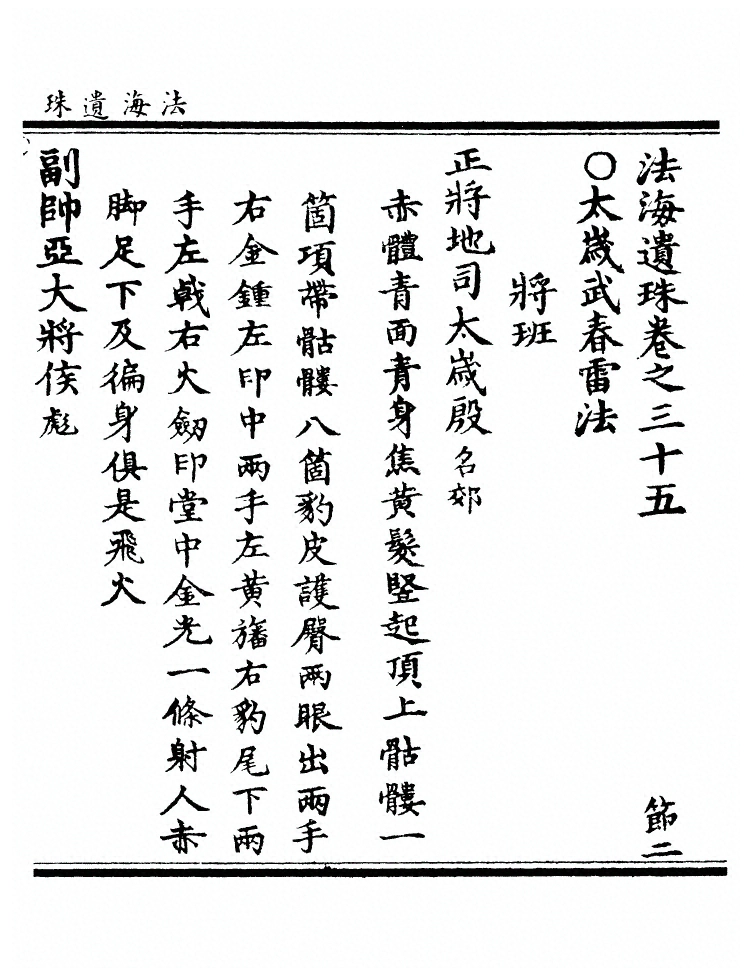 法海遺珠
法海遺珠卷之三十五　節二
○太歲武春雷法
將班
正將地司太歲殷名郊
赤體青面青身焦黃髮竪起頂上骷髏一
箇項帶骷髏八箇豹皮護臀兩眼出兩手
右金鍾左印中兩手左黃旛右豹尾下兩
手左戟右火劔印堂中金光一條射人赤
脚足下及徧身俱是飛火
副帥亞大將侯彪